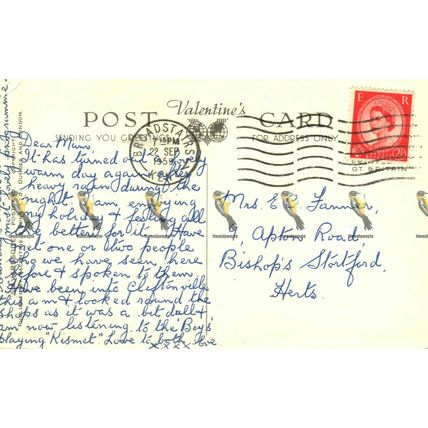 POST Valentine's CARD
SENDING YOU GREETINGS
FOR ADDRESS ONLY
BROADSTAIRS
PM
22 SEP
195
KENT
E R
Dear Mum,
It has turned out a very
warm day again after
heavy rain during the
night. I am enjoying
my holiday & feeling all
the better for it. Have
met one or two people
who we have seen here
before & spoken to them.
Have been into Cliftonville
this a.m & looked round the
shops as it was a bit dull &
am now listening to the "Boys"
playing "Kismet" Love to both Eve
xxxx
Mrs. E Fanner,
9, Apton Road,
Bishop's Stortford,
Herts.